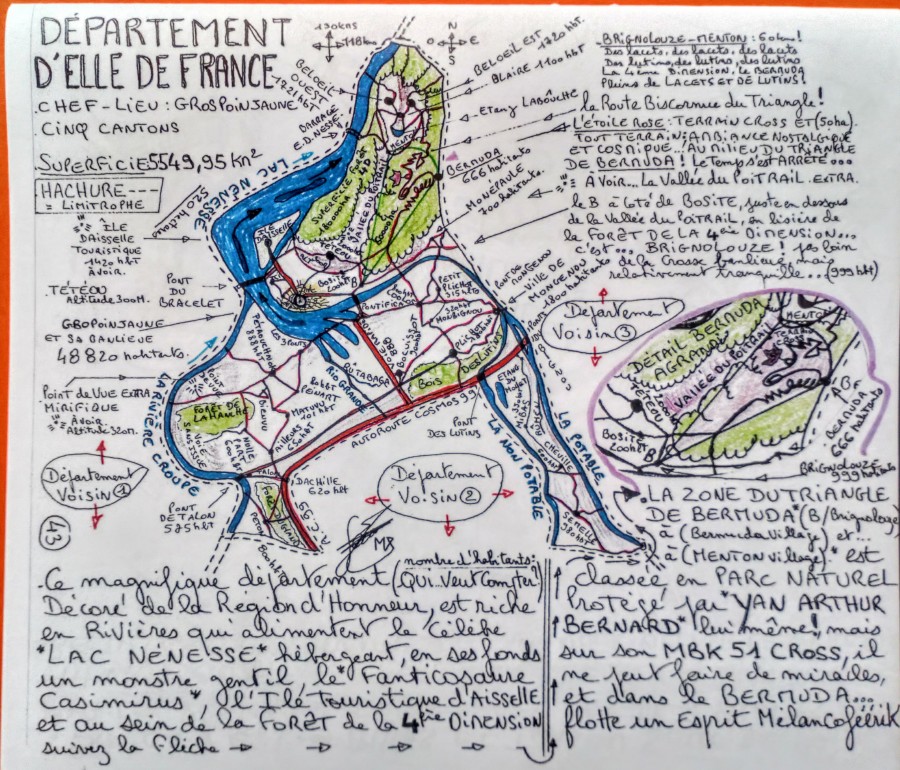 DÉPARTEMENT
D'ELLE DE FRANCE
CHEF-LIEU: GROSPOINJAUNE
CINQ CANTONS
SUPERFICIE 5549,95 KM²
HACHURE ---
= LIMITROPHE
ÎLE
DAISSELLE
TOURISTIQUE
1420 hbt
À VOIR.
TÉTÉON
Altitude 300M.
PONT
DU
BRACELET
GROPOINJAUNE
ET SA BANLIEUE
48820 habitants
Point de Vue EXTRA
MIRIFIQUE
À VOIR.
Altitude 32m.
Département
Voisin ①
43
PONT
DE TALON
585 hbt
130 KMS
118 km
N
O
E
S
BELOEIL
OUEST
1721 hbt
BARRAGE
E.D.NESSE
LAC NÉNESSE
520 hectares
BELOEIL EST
1720 hbt
BLAIRE 1100 hbt
Etang LABOUCHE
BERMUDA
666 habitants
MONEPAULE
700 habitants
PONT DE
MONGENOU
VILLE DE
MONGENOU
1800 habitants
MENTON
VALLÉE DU POITRAIL
ÎLE
DAISSELLE
BOSITE
B
PONTIFIAN
PETIT
PLICHET
315 hbts
LES 3 PONTS
RIOGRANDE
RUTABAGA
MATUVU
FORÊT DE
LA HANCHE
VOIE
SANS ISSUE
AILLEURS
650 hbt
TALON
DACHILLE
620 hbt
LA RIVIÈRE CROUPE
AUTOROUTE COSMOS 99
BOIS
DES LUTINS
PONT
DES LUTINS
ETANG
DU
MOLLET
LA POTABLE
LA NON POTABLE
CHEVILLE
SEMELLE
320 hbt
Département
Voisin ②
Département
Voisin ③
BRIGNOLOUZE-MENTON: 60 km!
Des lacets, des lacets, des lacets
Des lutins, des lutins, des lutins
La 4ème DIMENSION, le BERMUDA
Pleins de LACETS ET DE LUTINS!
la Route Biscornue du Triangle!
L'ÉTOILE ROSE: TERRAIN CROSS ET (50ha).
TOUT TERRAIN; AMBIANCE NOSTALGIQUE
ET COSMIQUE... AU MILIEU DU TRIANGLE
DE BERMUDA! Le Temps s'est ARRÊTÉ...
À VOIR... La Vallée du POITRAIL. EXTRA.
le B à Côté de BOSITE, juste en dessous
de la Vallée du Poitrail, en lisière de
la FORÊT DE LA 4ème DIMENSION...
c'est... BRIGNOLOUZE! pas loin
de la Grosse banlieue, mais
relativement tranquille... (999 hbt)
DÉTAIL BERMUDA
AGRANDI
MENTON
TERRAIN
CROSS
VALLÉE DU POITRAIL
TÉTÉON
BOSITE
600 hbt
B
BF
BERMUDA
666 habitants
BRIGNOLOUZE
999 habitants
LA ZONE DU TRIANGLE
DE BERMUDA* (B/Brignolouze)
à (Bermuda Village) et...
à (MENTON village).* est
MR
nombre d'habitants:
(QUI.. VEUT Compter)
Ce magnifique département
Décoré de la Région d'Honneur, est riche
en RIVIÈRES qui alimentent le Célèbe
"LAC NÉNESSE" hébergeant, en ses fonds
un monstre gentil le "Fanticosaure
Casimirus", l'Ilé Touristique d'Aisselle
et au sein de la FORÊT de la 4ème DIMENSION
suivez la Flèche
classée en PARC NATUREL
Protégé par "YAN ARTHUR
BERNARD" lui même!, mais
sur son MBK 51 CROSS, il
ne peut faire de miracles,
et dans le BERMUDA...
flotte un Esprit Mélancoféérik